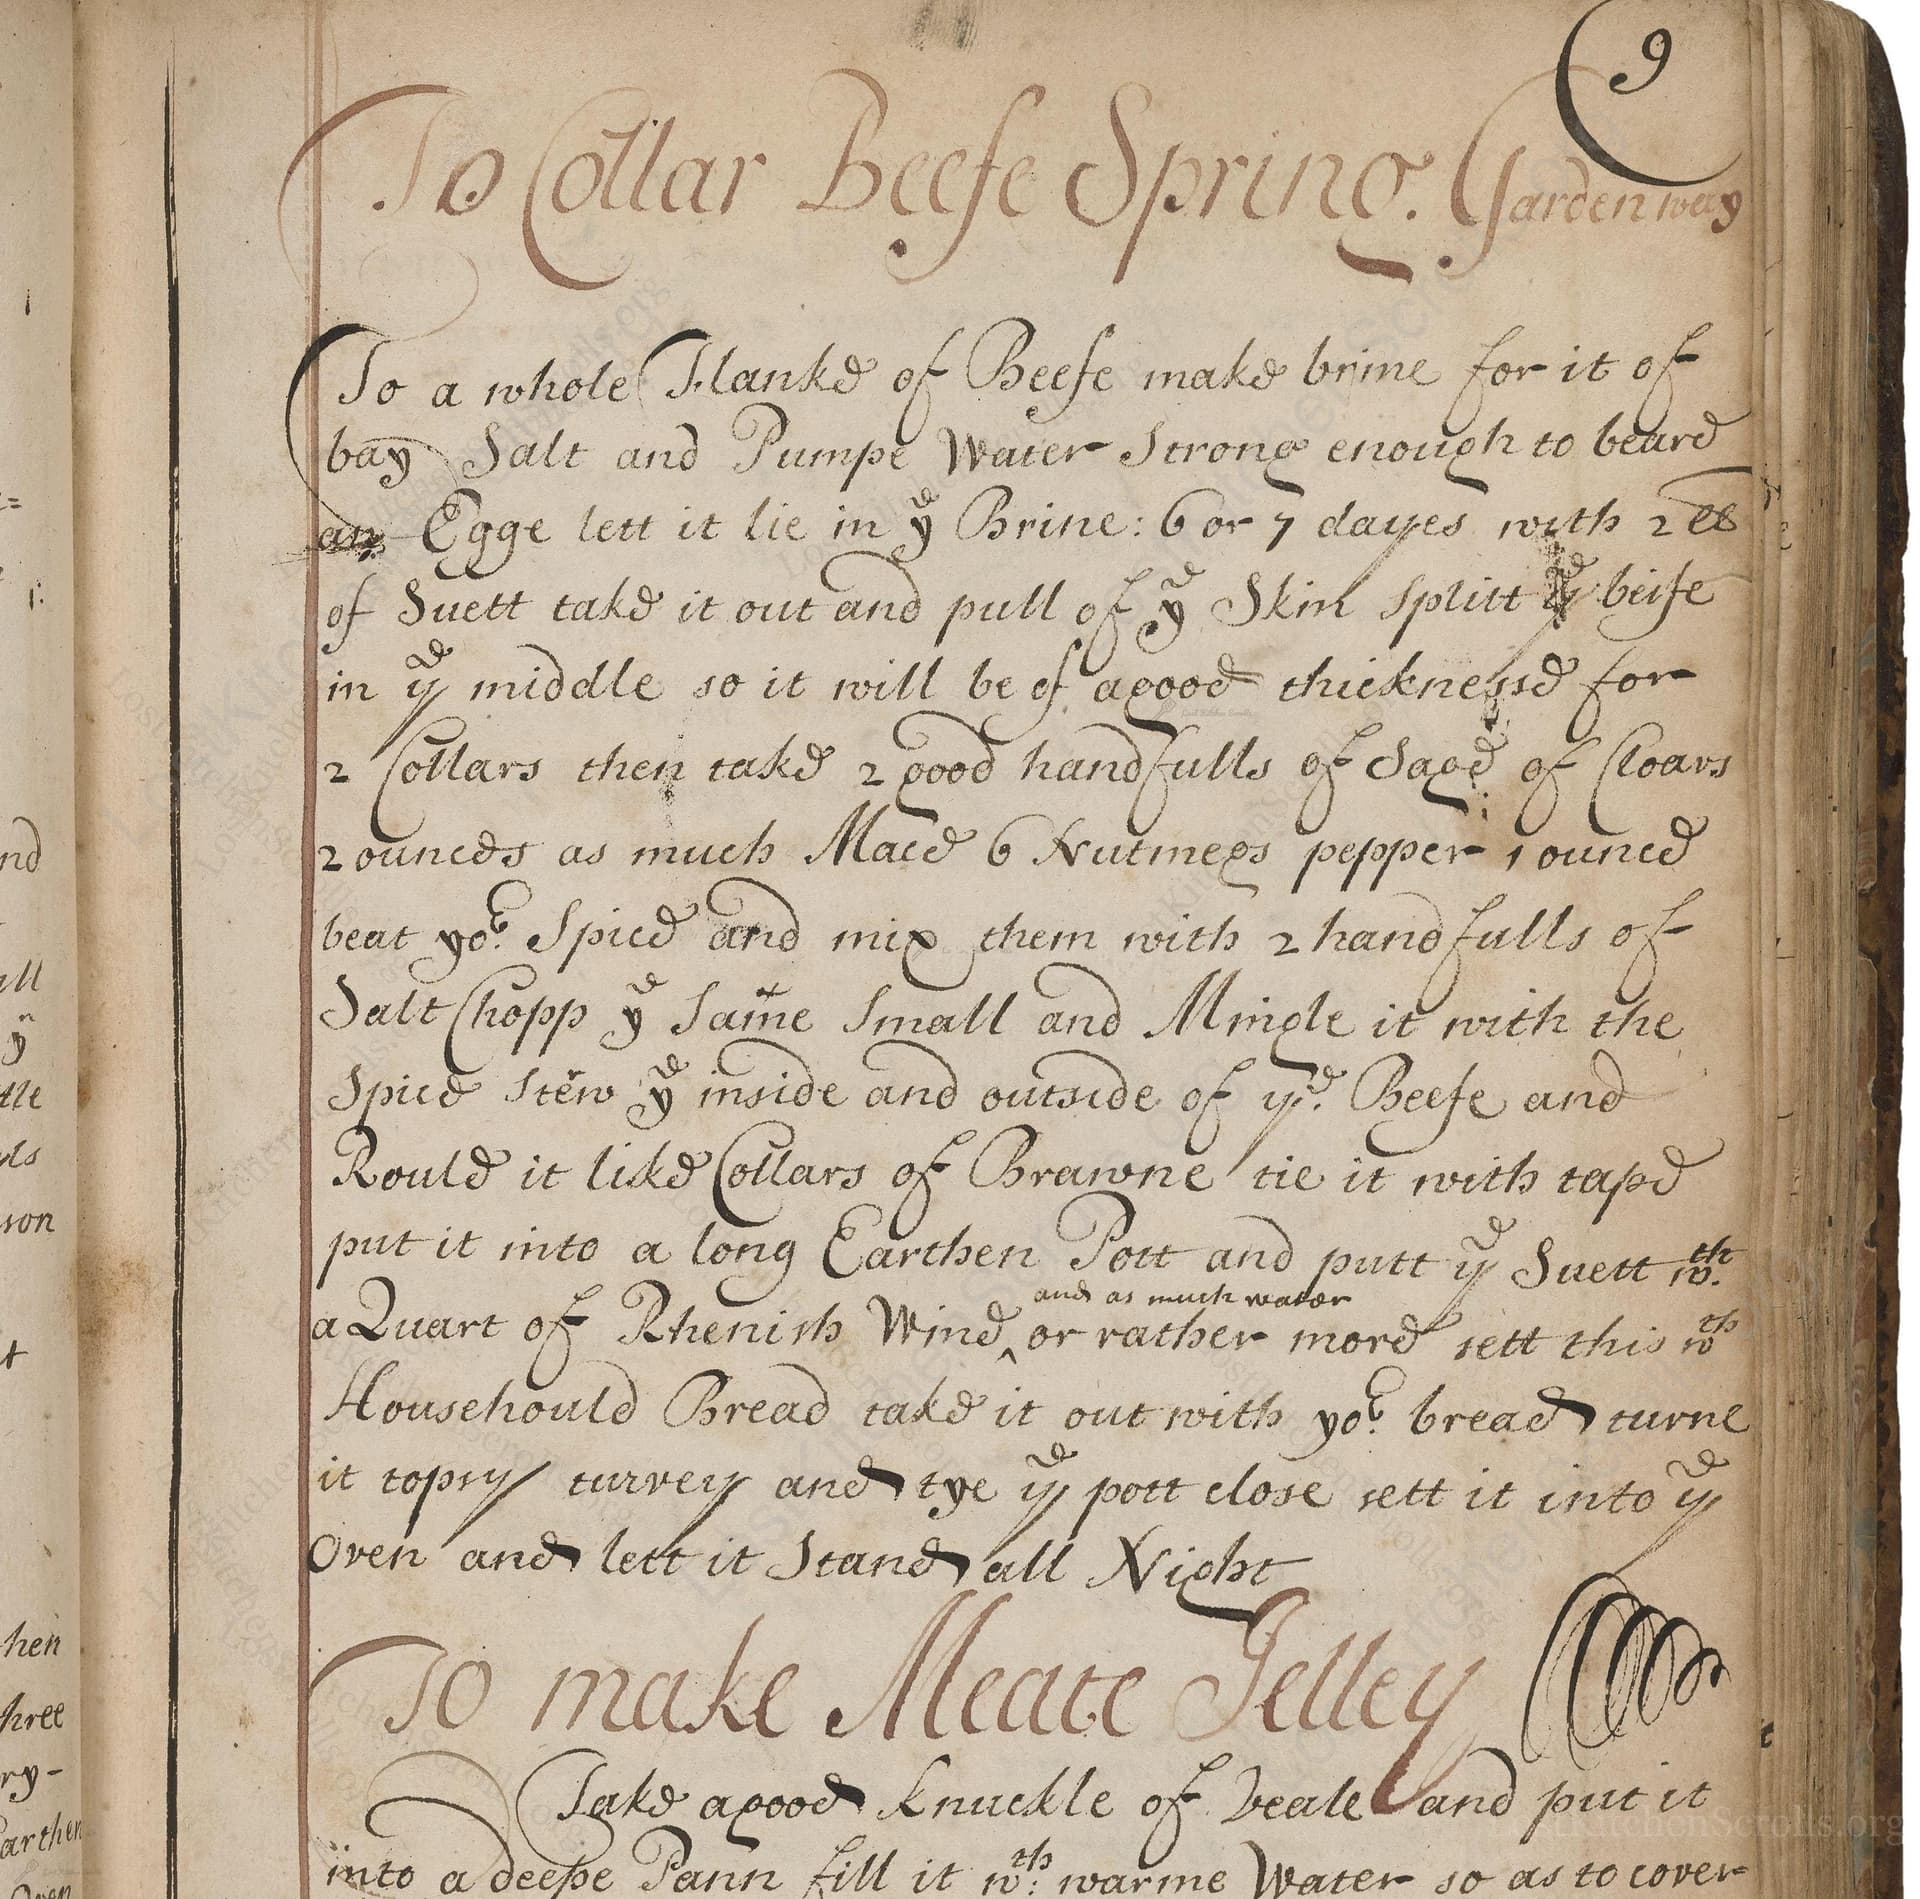 9
To Collar Beefe Spring. Garden way
To a whole Flanke of Beefe make brine for it of
bay Salt and Pumpe Water Strong enough to beare
an Egge lett it lie in yᵉ Brine: 6 or 7 dayes with 2 ll
of Suett take it out and pull of yᵉ Skin splitt yᵉ beife
in yᵉ middle so it will be of a good thicknesse for
2 Collars then take 2 good handfulls of Sage of Cloavs
2 ounces as much Mace 6 Nutmegs pepper 1 ounce
beat yoʳ. Spice and mix them with 2 handfulls of
Salt Chopp yᵉ Same Small and Mingle it with the
Spice Stew yᵉ inside and outside of yᵉ. Beefe and
Rould it like Collars of Brawne tie it with tape
put it into a long Earthen Pott and putt yᵉ Suett wᵗʰ.
and as much water
a Quart of Rhenish Wine ‸ or rather more sett this wᵗʰ
Househould Bread take it out with yoʳ. bread turne
it topsy turvey and tye yᵉ pott close sett it into yᵉ
Oven and lett it Stand all Night
To make Meate Jelley
Take a good Knuckle of Veale and put it
into a deepe Pann fill it wᵗʰ: warme Water so as to cover